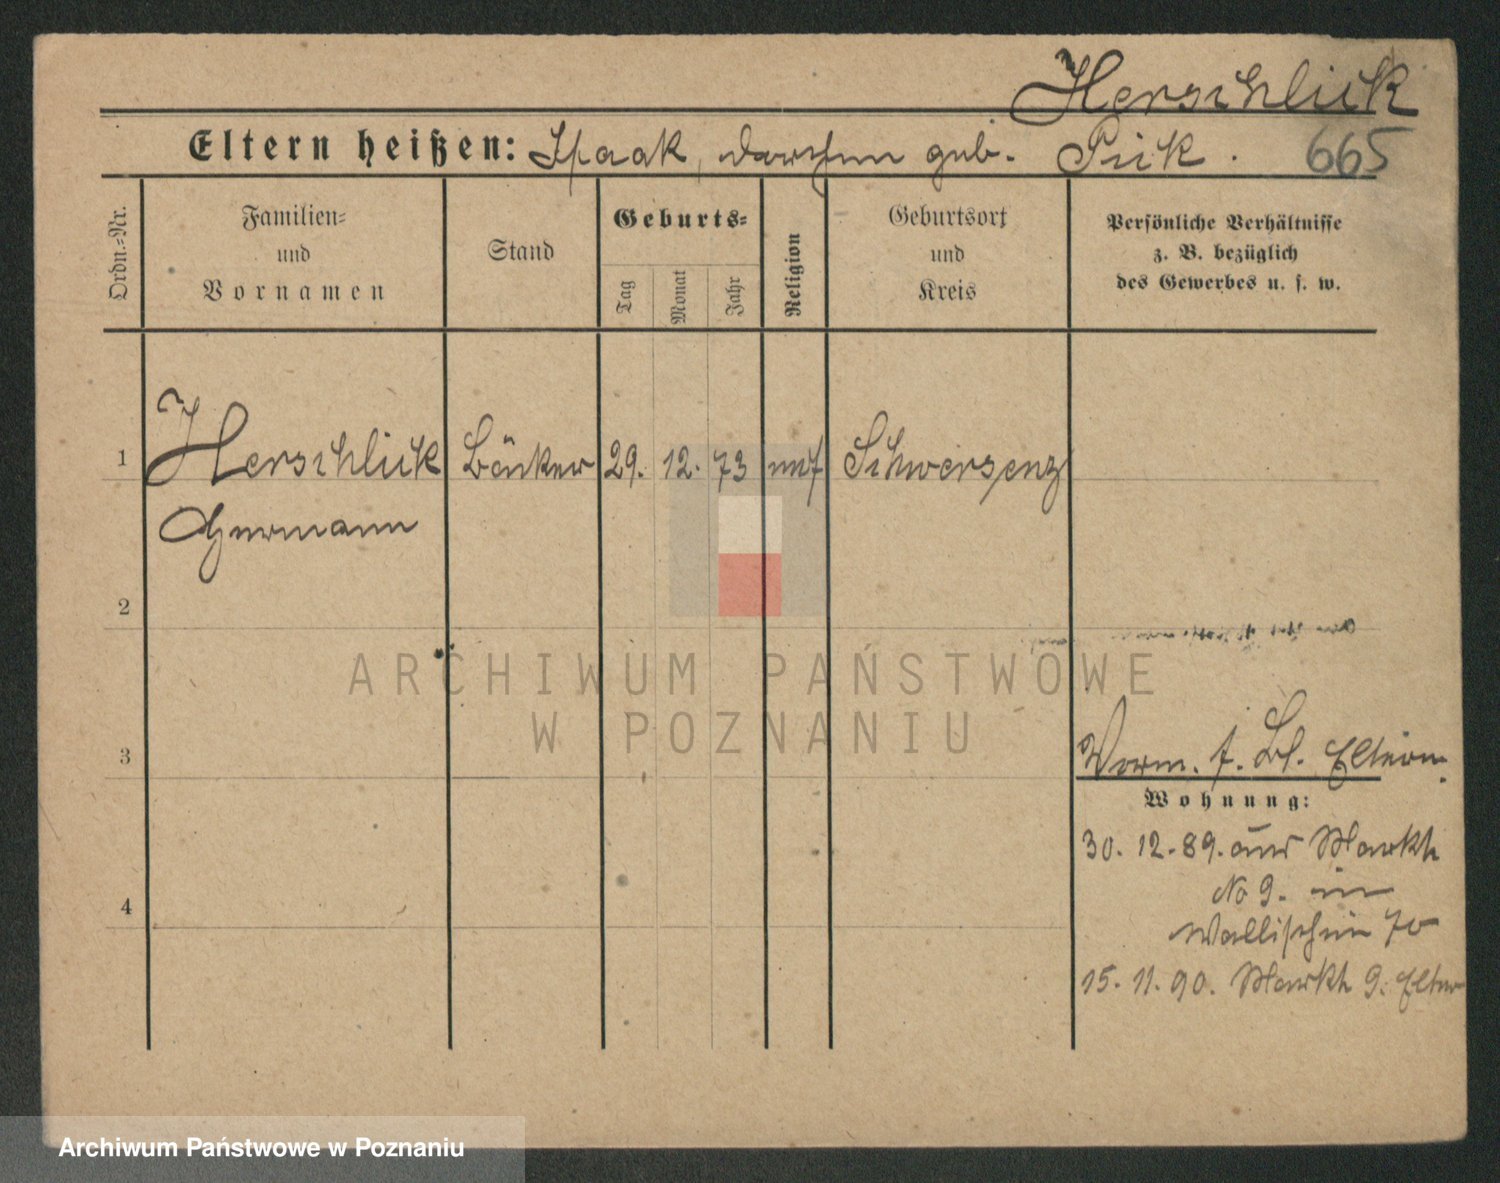 Herschlick
Eltern heißen: Isaak, Dorchen geb. Pick. 665
Ordn.-Nr.
Familien-
und
Vornamen
Stand
Geburts-
Tag
Monat
Jahr
Religion
Geburtsort
und
Kreis
Persönliche Verhältnisse
z. B. bezüglich
des Gewerbes u. s. w.
1 Herschlick Bäcker 29. 12. 73 mos Schwersenz
Hermann
2
3
Vorm. s. Bl. Eltern.
Wohnung:
30. 12. 89. aus Markt
No 9. in
Wallischei 70
15. 11. 90. Markt 9. Elter
4
ARCHIWUM PAŃSTWOWE
W POZNANIU
Archiwum Państwowe w Poznaniu